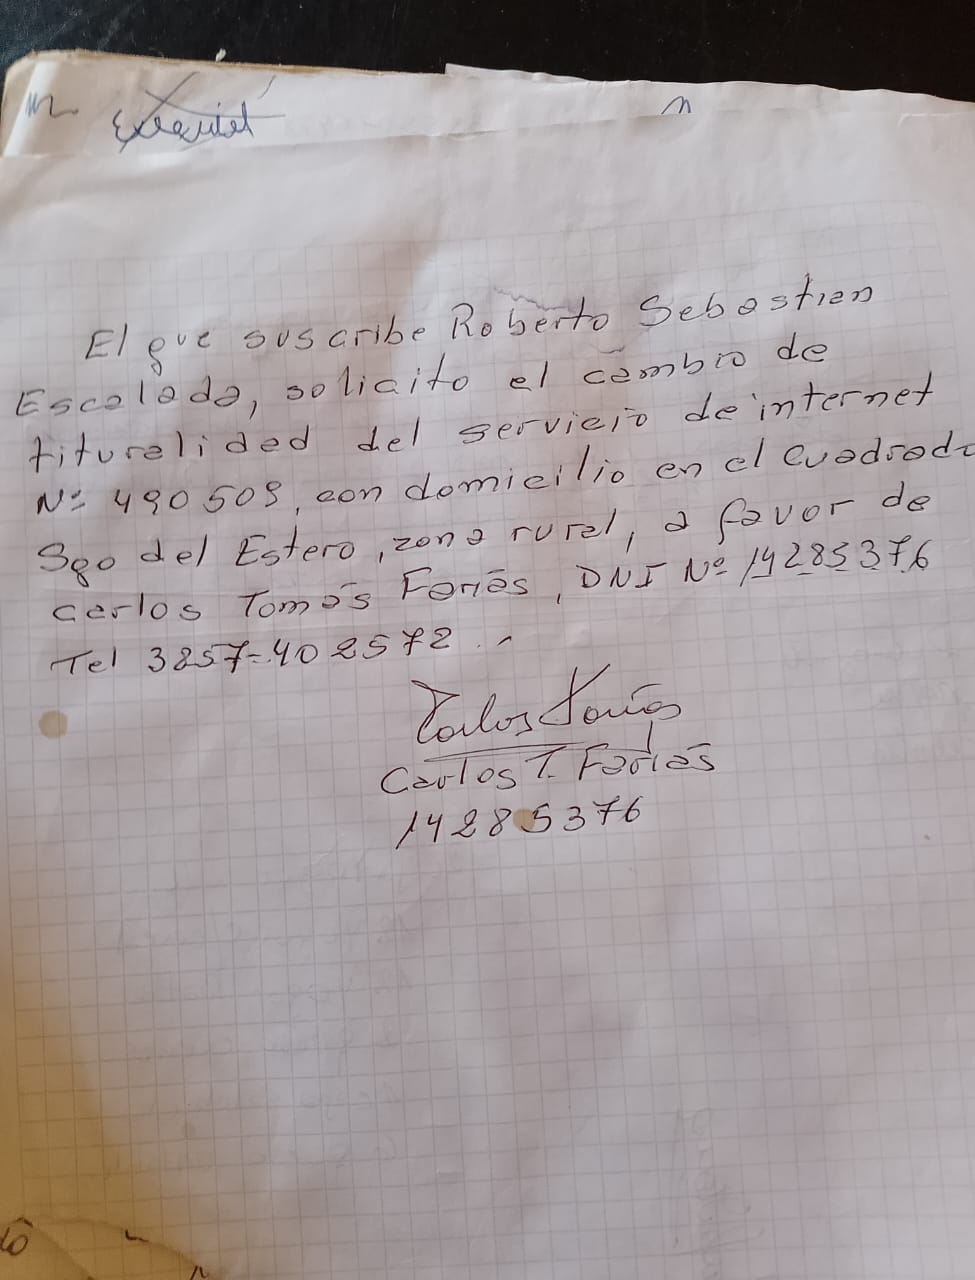 Exequiel
El que suscribe Roberto Sebastian
Escalada, soliaito el cambio de
tituralidad del servicio de internet
Nº 490509, con domicilio en el Cuadrado
Sgo del Estero, zona rural, a favor de
Carlos Tomás Farías, DNI Nº 14285376
Tel 3857-402572.-
Carlos Farías
Carlos T. Farías
14285376